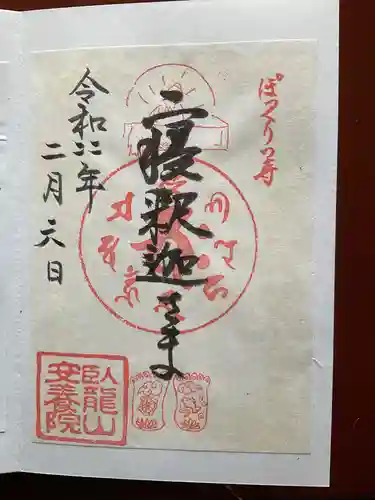 ぽっくり寺
寝釈迦さま
令和二年
二月六日
臥龍山
安養院